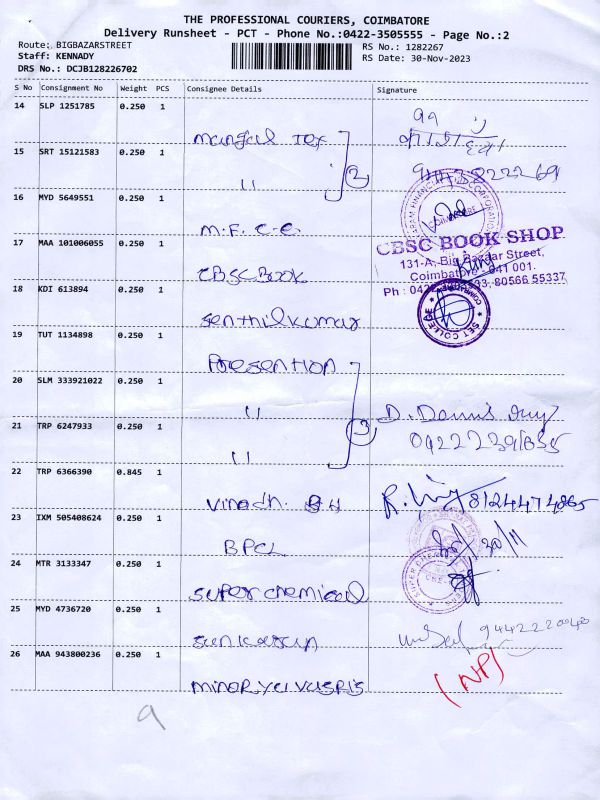 THE PROFESSIONAL COURIERS, COIMBATORE
Delivery Runsheet - PCT - Phone No.:0422-3505555 - Page No.:2
Route: BIGBAZARSTREET
Staff: KENNADY
DRS No.: DCJB128226702
RS No.: 1282267
RS Date: 30-Nov-2023
S No Consignment No Weight PCS Consignee Details Signature
14 SLP 1251785 0.250 1
mangal Tex
15 SRT 15121583 0.250 1
11 2
16 MYD 5649551 0.250 1
M.F. C.C.
17 MAA 101006055 0.250 1
CBSC BOOK SHOP
131-A, Big Bazaar Street,
CBSC Book
18 KDI 613894 0.250 1
SET COLLEGE
Senthilkumar
19 TUT 1134898 0.250 1
Presention
20 SLM 333921022 0.250 1
11
D. Dennis
21 TRP 6247933 0.250 1
3
11
22 TRP 6366390 0.845 1
Vinodh.
8124474865
23 IXM 505408624 0.250 1
BPCL
30/11
24 MTR 3133347 0.250 1
Super chemical
25 MYD 4736720 0.250 1
9442220040
26 MAA 943800236 0.250 1
(NP)
9